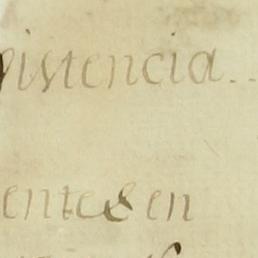 istencia..
entes en